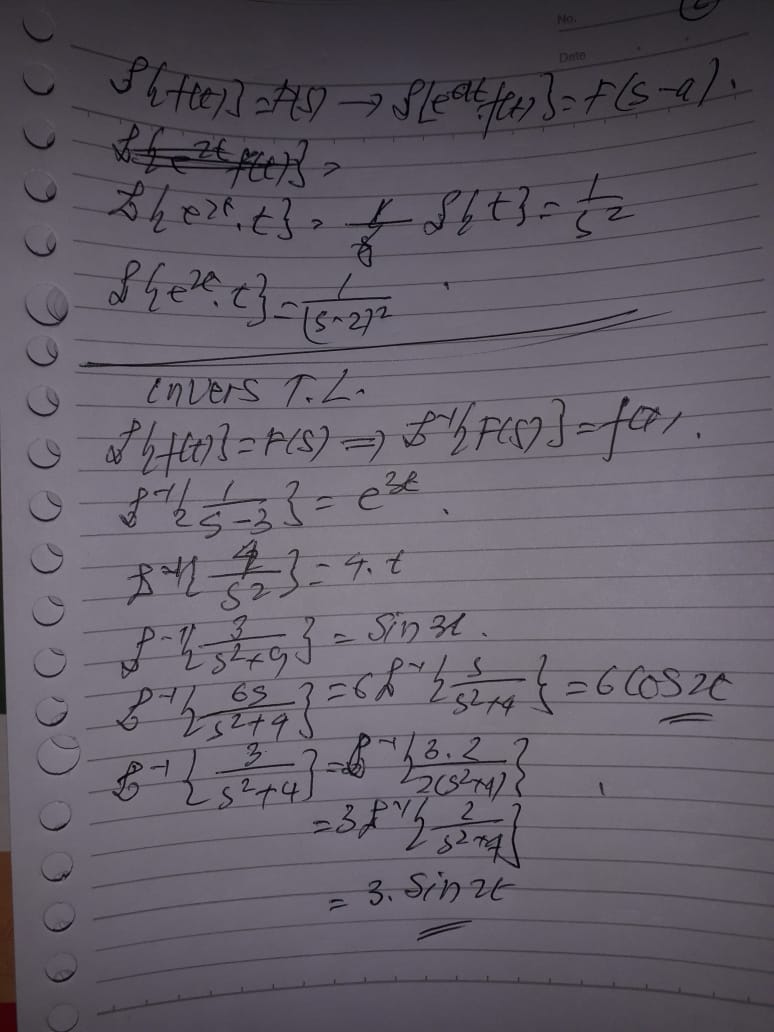 No.
Date
ℒ{f(t)} = F(s) → ℒ{e^at. f(t)} = F(s-a).
ℒ{e^2t f(t)} =
ℒ{e^2t. t} = ℒ{t} = 1/s^2
ℒ{e^2t. t} = 1/(s-2)^2
invers T.L.
ℒ{f(t)} = F(s) ⇒ ℒ^-1{F(s)} = f(t).
ℒ^-1{1/(s-3)} = e^3t.
ℒ^-1{4/s^2} = 4. t
ℒ^-1{3/(s^2+9)} = Sin 3t.
ℒ^-1{6s/(s^2+4)} = 6ℒ^-1{s/(s^2+4)} = 6 Cos 2t
ℒ^-1{3/(s^2+4)} = ℒ^-1{3.2/2(s^2+4)}
= 3ℒ^-1{2/(s^2+4)}
= 3. Sin 2t